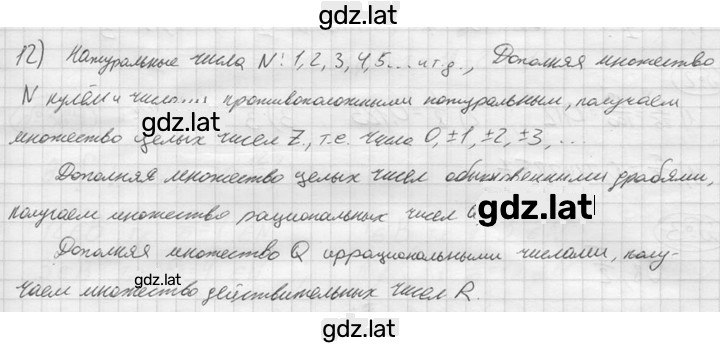 gdz.lat
12) Натуральные числа N: 1, 2, 3, 4, 5... и т.д., Дополняя множество
N нулём и числ.... противоположными натуральным, получаем
gdz.lat
множество целых чисел Z, т.е. числа 0, ±1, ±2, ±3, ...
Дополняя множество целых чисел обыкновенными дробями,
получаем множество рациональных чисел
gdz.lat
Дополняя множество Q иррациональными числами, полу-
gdz.lat
чаем множество действительных чисел R.
gdz.lat